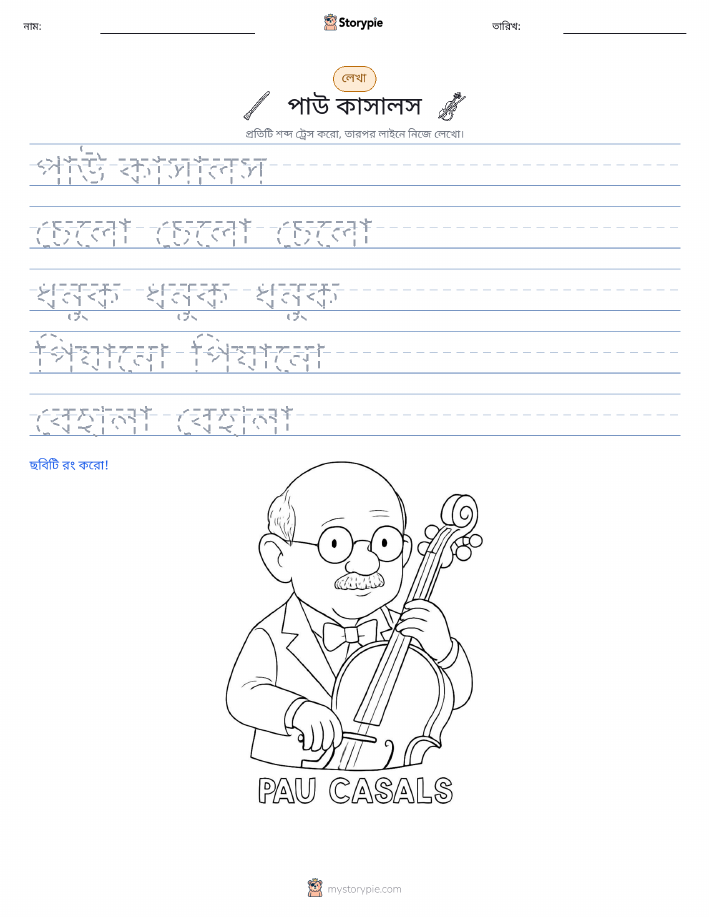 নাম:
Storypie
তারিখ:
লেখা
পাউ কাসালস
প্রতিটি শব্দ ট্রেস করো, তারপর লাইনে নিজে লেখো।
পাউ কাসালস
চেলো চেলো চেলো
ধনুক ধনুক ধনুক
পিয়ানো পিয়ানো
বেহালা বেহালা
ছবিটি রং করো!
PAU CASALS
mystorypie.com